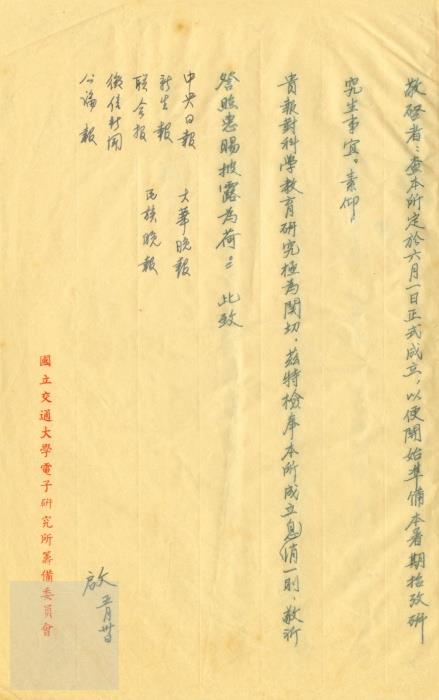 敬啓者：查本所定於六月一日正式成立，以便開始準備本暑期招攷研
究生事宜。素仰
貴報對科學教育研究極為関切，茲特檢奉本所成立息消一則，敬祈
詧照惠賜披露為荷＝　此致
中央日報　大華晚報
新生報　民族晚報
聯合報
徵信新聞
公論報
國立交通大學電子研究所籌備委員會
啟　五月卅日